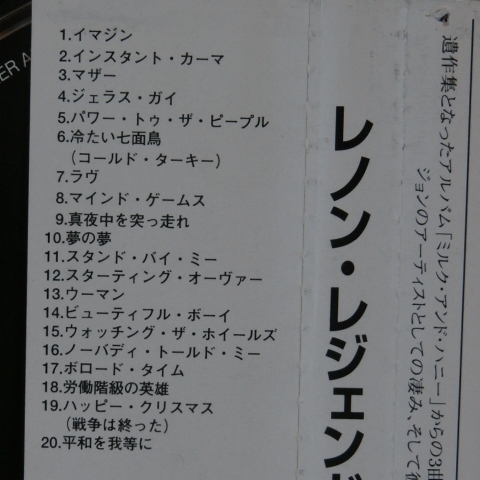 1.イマジン
2.インスタント・カーマ
3.マザー
4.ジェラス・ガイ
5.パワー・トゥ・ザ・ピープル
6.冷たい七面鳥
(コールド・ターキー)
7.ラヴ
8.マインド・ゲームス
9.真夜中を突っ走れ
10.夢の夢
11.スタンド・バイ・ミー
12.スターティング・オーヴァー
13.ウーマン
14.ビューティフル・ボーイ
15.ウォッチング・ザ・ホイールズ
16.ノーバディ・トールド・ミー
17.ボロード・タイム
18.労働階級の英雄
19.ハッピー・クリスマス
(戦争は終った)
20.平和を我等に
レノン・レジェンド
遺作集となったアルバム「ミルク・アンド・ハニー」からの3曲
ジョンのアーティストとしての凄み、そして